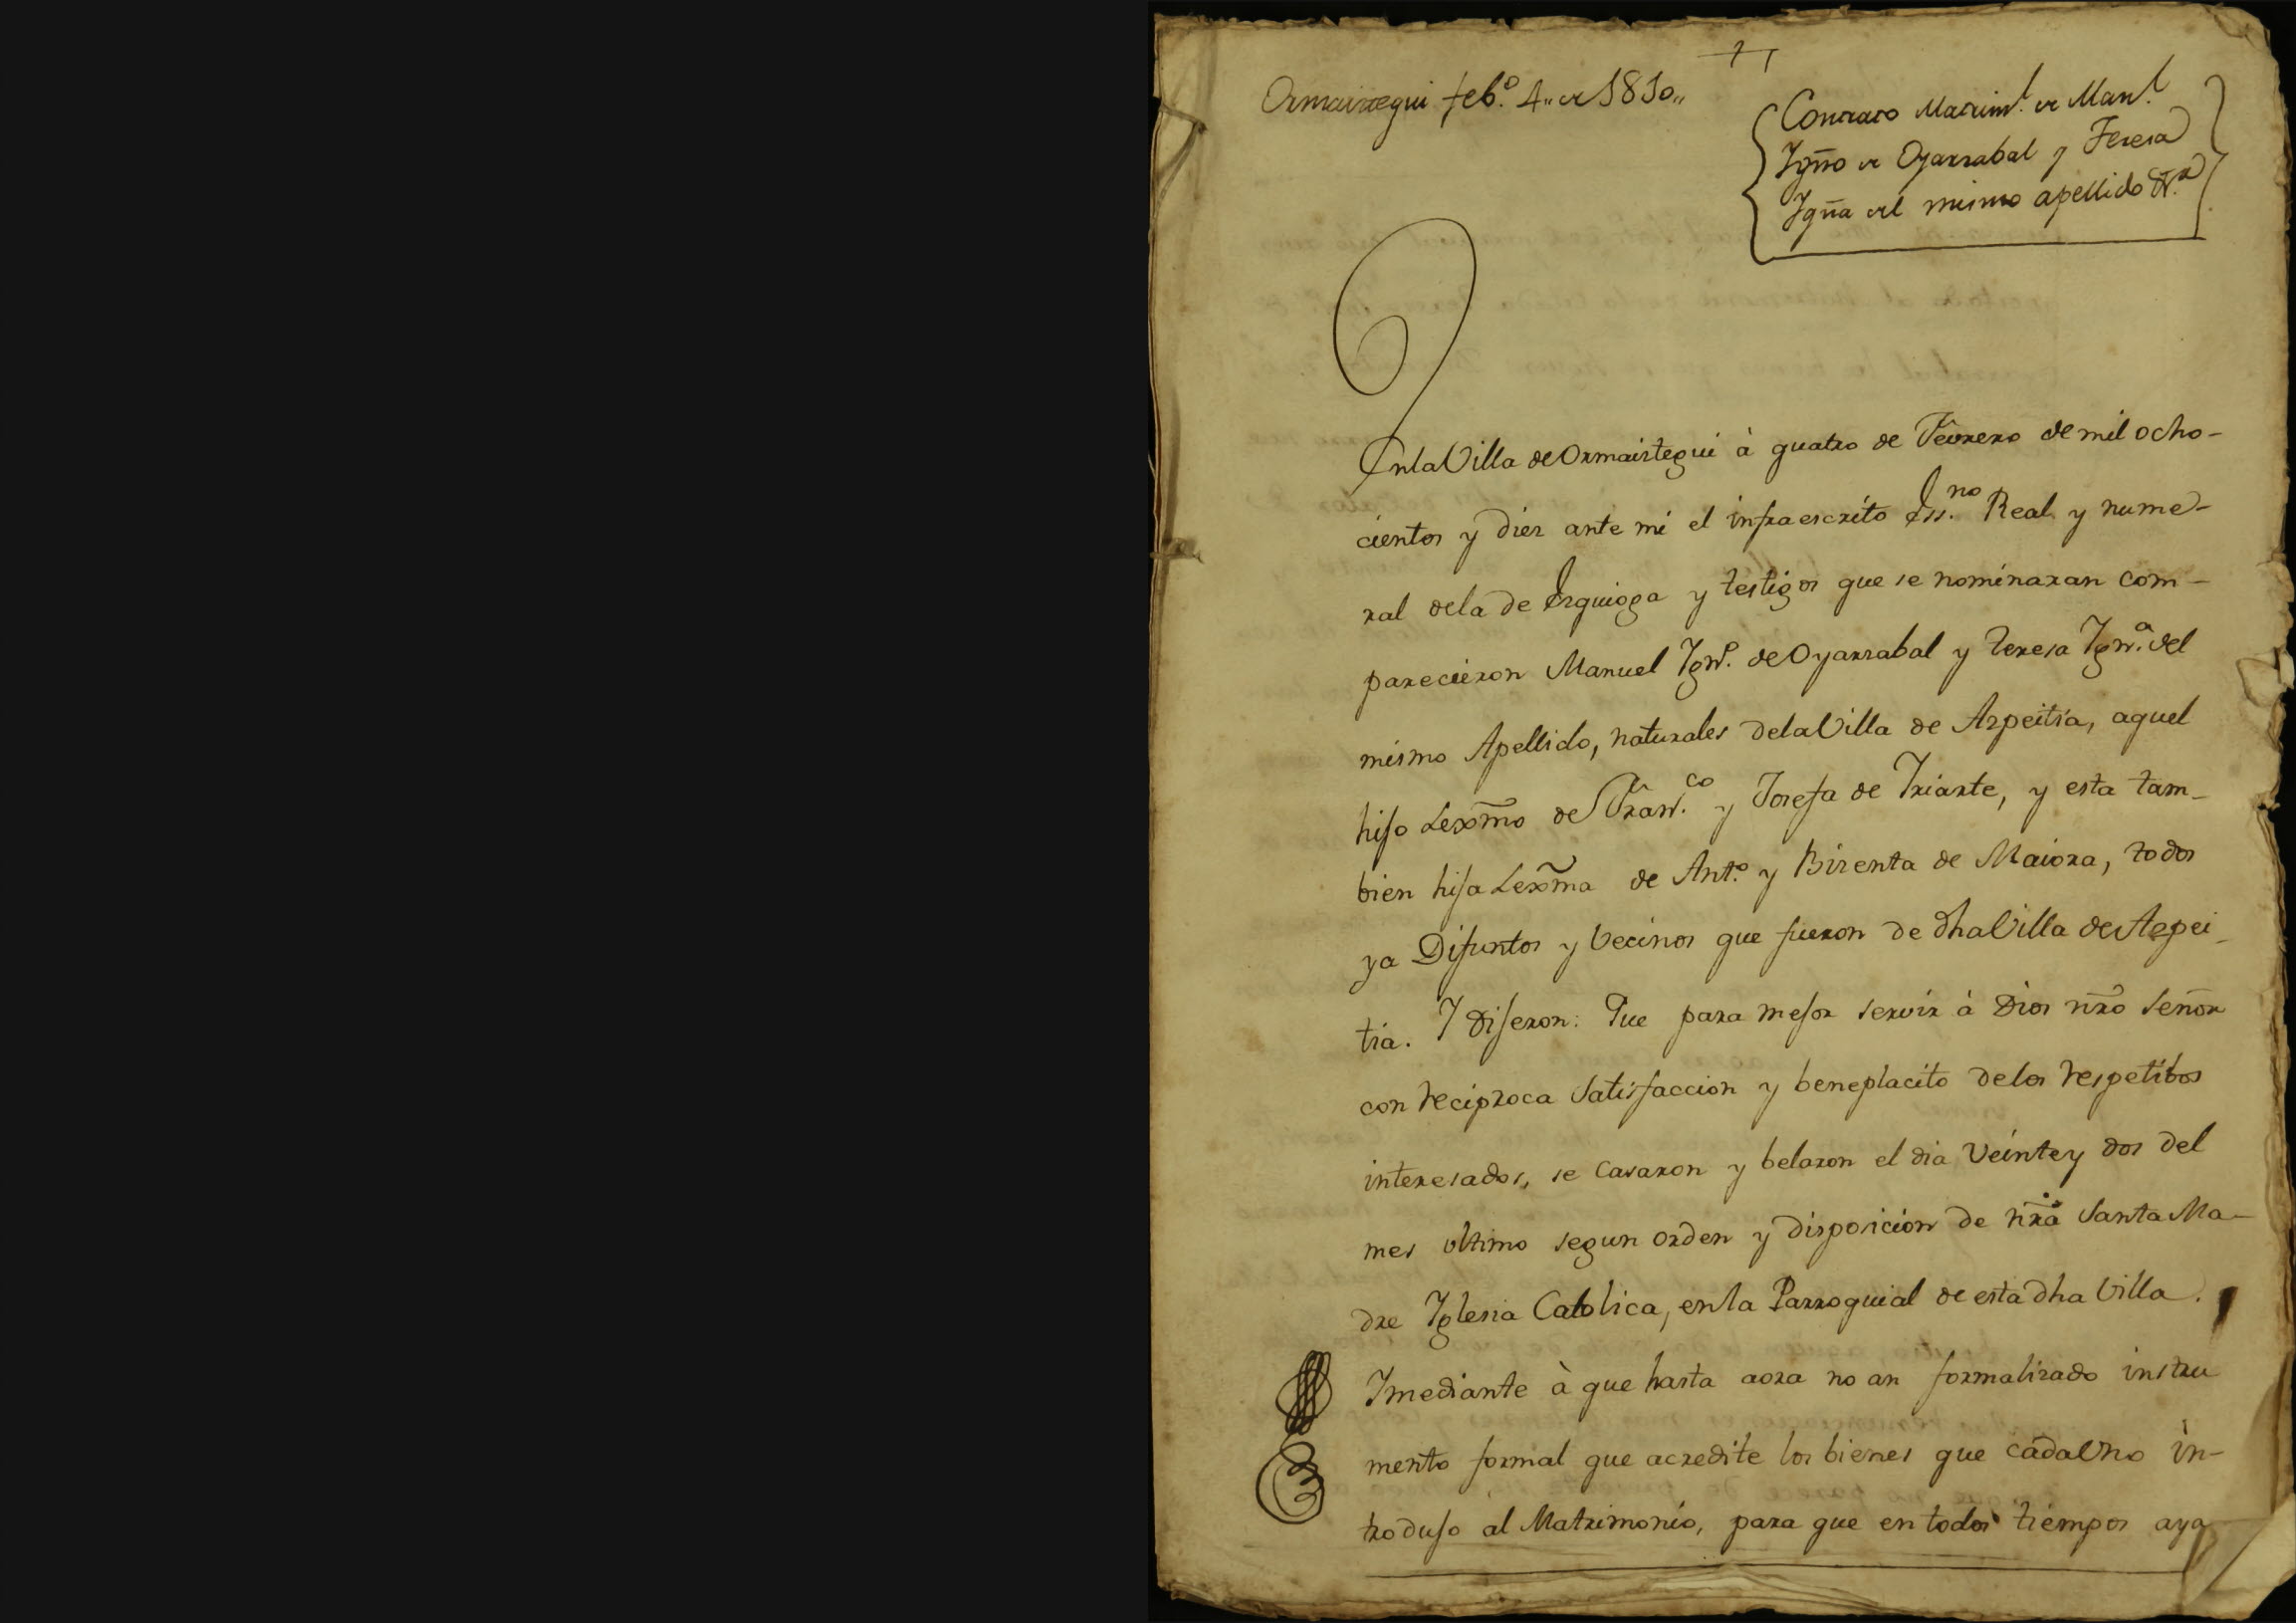 Ormaiztegui feb.º 4,, de 1810,,
Contrato Matrim.l de Man.l
Ygño de Oyarzabal y Teresa
Ygña del mismo apellido
En la Villa de Ormaiztegui à quatro de Febrero de mil ocho-
cientos y diez ante mi el infraescrito Ess.no Real y nume-
ral de la de Ezquioga y testigos que se nominaran com-
parecieron Manuel Ygn.º de Oyarzabal y Teresa Ygn.a del
mismo Apellido, naturales de la Villa de Azpeitia, aquel
hijo Lexmo de Fran.co y Josefa de Yriarte, y esta tam-
bien hija Lexma de Ant.º y Bizenta de Maiora, todos
ya Difuntos y Vecinos que fueron de dha Villa de Azpei-
tia. Y Dijeron: Que para mejor servir à Dios nro Señor
con reciproca satisfaccion y beneplacito de los respetibos
interesados, se casaron y belaron el dia veinte y dos del
mes ultimo segun orden y disposicion de nra Santa Ma-
dre Yglesia Catolica, en la Parroquial de esta dha Villa.
Y mediante à que hasta aora no an formalizado instru
mento formal que acredite los bienes que cada uno in-
trodujo al Matrimonio, para que en todos tiempos aya